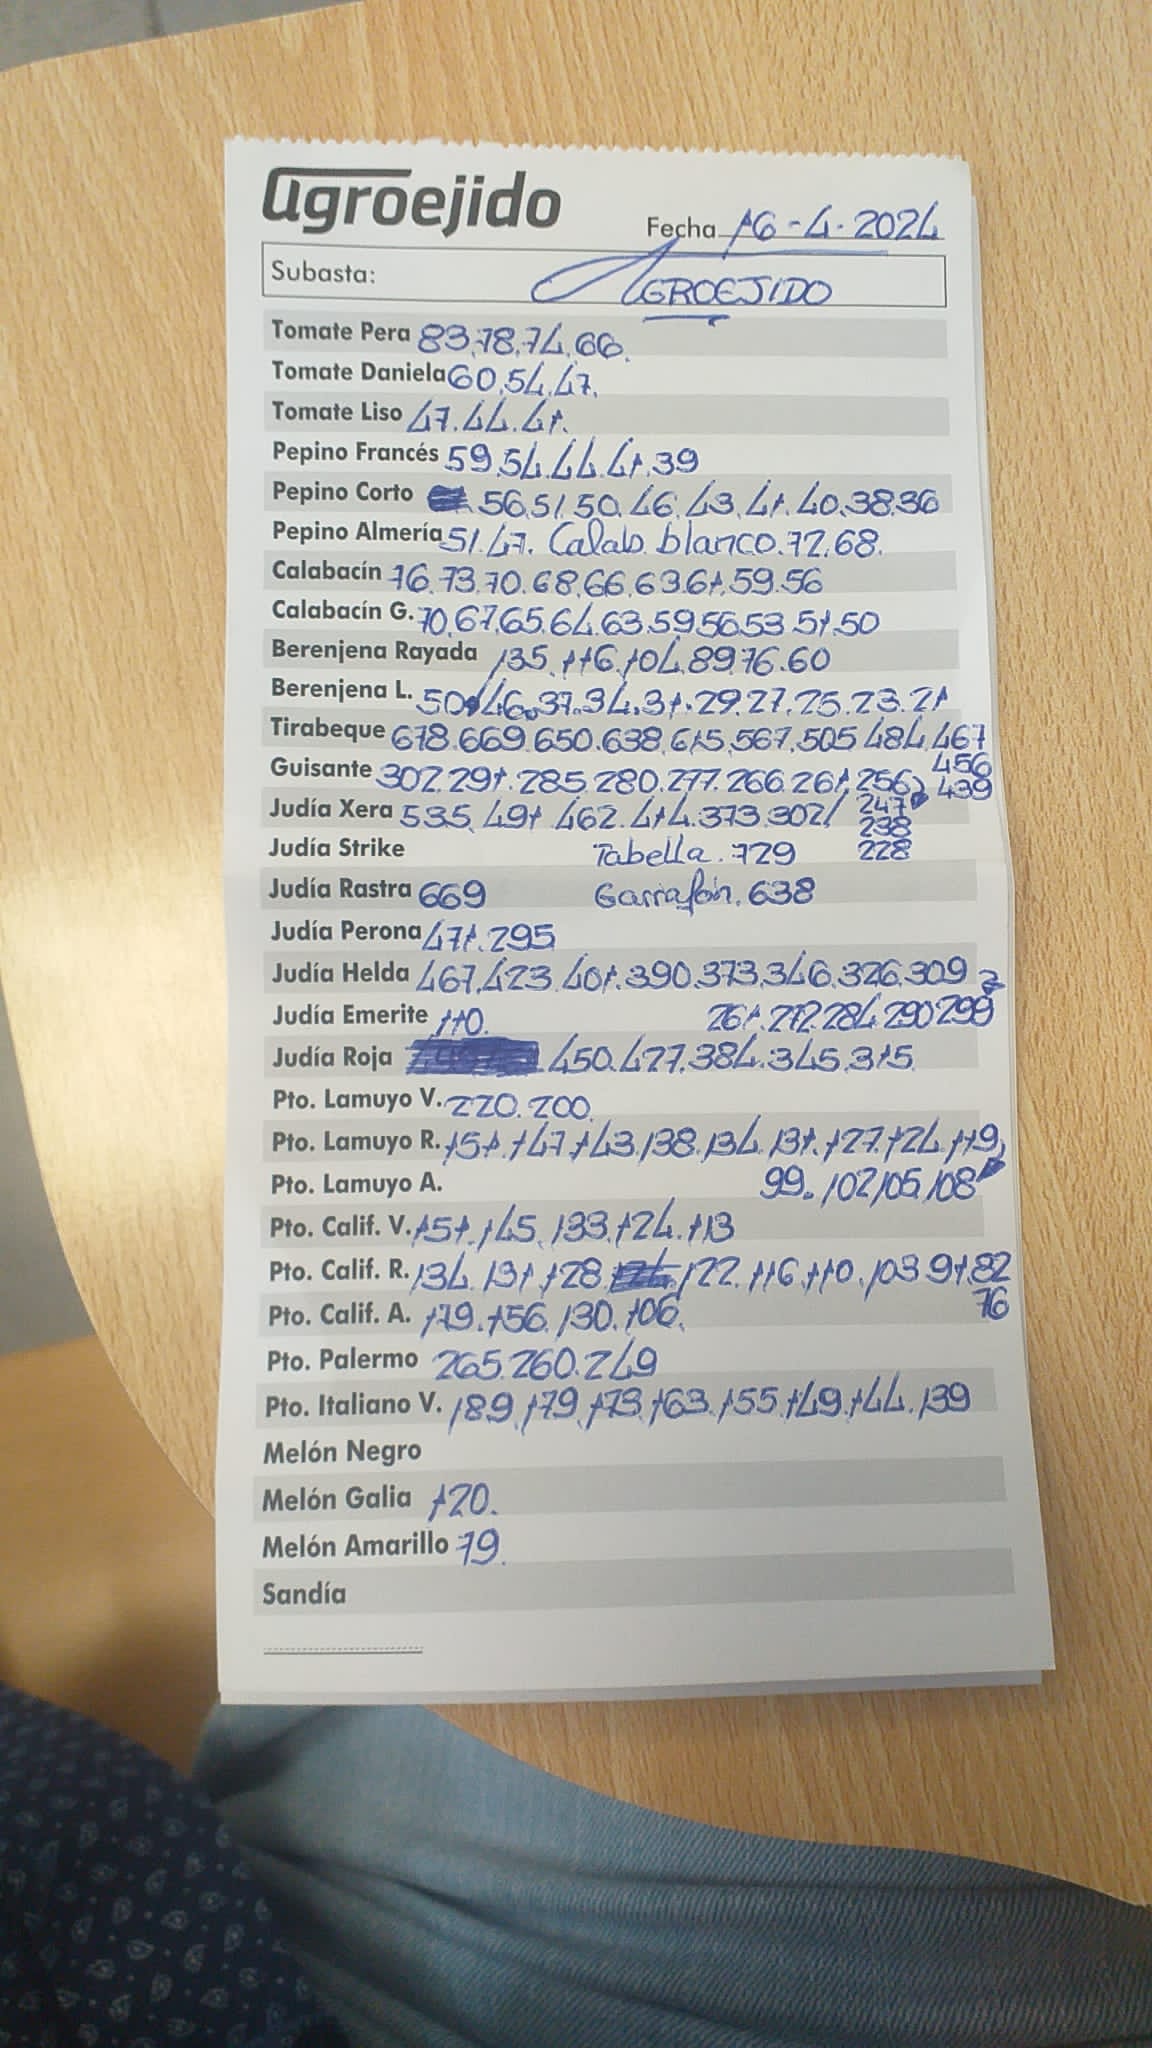 agroejido
Fecha 16-4-2024
Subasta: AGROEJIDO
Tomate Pera 83.78.74.66.
Tomate Daniela 60.54.47.
Tomate Liso 47.44.41.
Pepino Francés 59.54.44.41.39
Pepino Corto 56.51.50.46.43.41.40.38.36
Pepino Almería 51.47. Calab. blanco.72.68.
Calabacín 76.73.70.68.66.63.61.59.56
Calabacín G. 70.67.65.64.63.59.56.53.51.50
Berenjena Rayada 135.116.104.89.76.60
Berenjena L. 50.46.37.34.31.29.27.25.23.21
Tirabeque 678.669.650.638.615.567.505.484.467
456
439
Guisante 302.291.285.280.277.266.261.256
247
238
228
Judía Xera 535.491.462.414.373.302
Judía Strike Tabella.729
Judía Rastra 669 Garrafón.638
Judía Perona 471.295
Judía Helda 467.423.401.390.373.346.326.309
261.272.284.290.299
Judía Emerite 110.
Judía Roja 450.427.384.345.315.
Pto. Lamuyo V. 220.200.
Pto. Lamuyo R. 151.147.143.138.134.131.127.124.119
99.102.105.108
Pto. Lamuyo A.
Pto. Calif. V. 151.145.133.124.113
Pto. Calif. R. 134.131.128.122.116.110.103.91.82
76
Pto. Calif. A. 179.156.130.106.
Pto. Palermo 265.260.249
Pto. Italiano V. 189.179.173.163.155.149.144.139
Melón Negro
Melón Galia 120.
Melón Amarillo 79.
Sandía